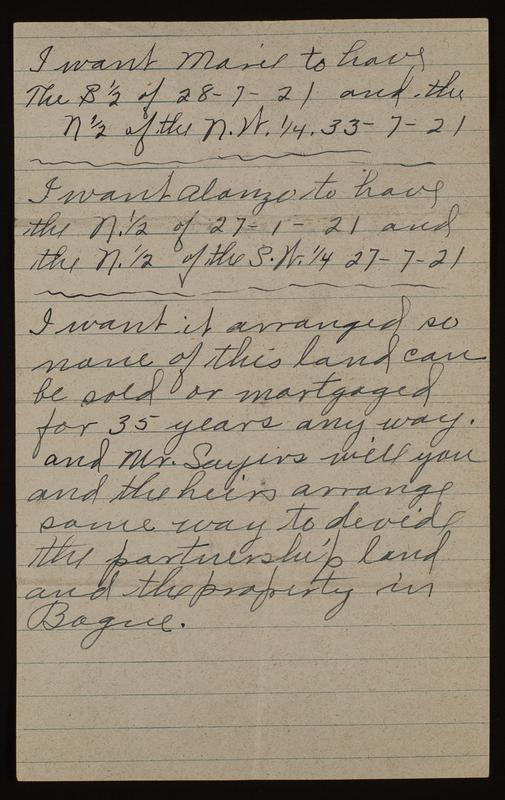 I want Marie to have
The S ½ of 28-7-21 and the
N ½ of the N.W. ¼. 33-7-21
I want Alonzo to have
the N. ½ of 27-1-21 and
the N. ½ of the S.W. ¼ 27-7-21
I want it arranged so
none of this land can
be sold or mortgaged
for 35 years any way.
and Mr. Sayers will you
and the heirs arrange
some way to devide
the partnership land
and the property in
Bogue.